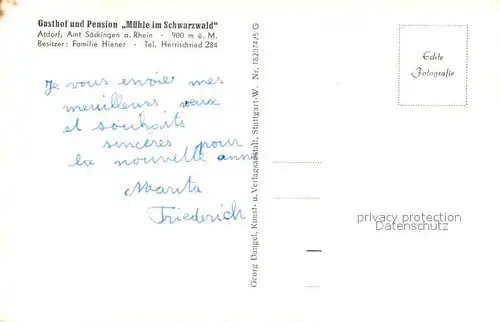 Gasthof und Pension „Mühle im Schwarzwald“
Atdorf, Amt Säckingen a. Rhein - 900 m ü. M.
Besitzer: Familie Hiener - Tel. Herrischried 284
Je vous envoie mes
meuilleurs veux
et souhaits
sincères pour
la nouvelle anné
Marita
Friederich
Georg Dangel, Kunst- u. Verlagsanstalt, Stuttgart-W. Nr. 18207475 G
Echte
Fotografie
privacy protection
AnsichtskartenVersand.com